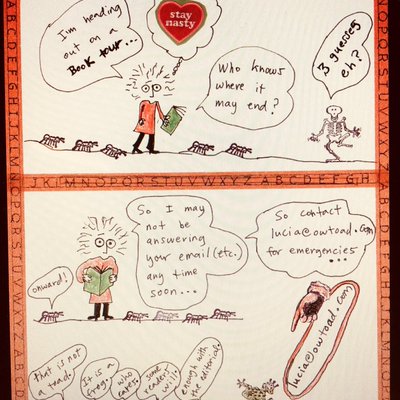 I'm heading
out on a
Book tour...
stay
nasty
Who knows
where it
may end?
3 guesses
eh?
ABCDEFGHIJKLMNOPQRSTUVWXYZABCDEFGH
onward!
So I may
not be
answering
your email (etc.)
any time
soon...
So contact
lucia@owtoad.com
for emergencies
...
lucia@owtoad.com
that is not
a toad.
It is a
frog.
who
cares.
some
readers
will.
enough with
the editorials.